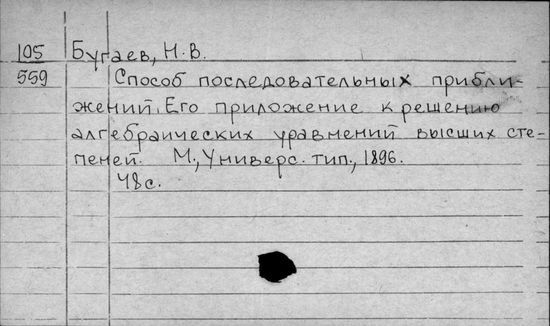 105 Бугаев, Н.В.
559 Способ последовательных прибли-
жений. Его приложение к решению
алгебраических уравнений высших сте-
пеней. М., Универс. тип., 1896.
48 с.